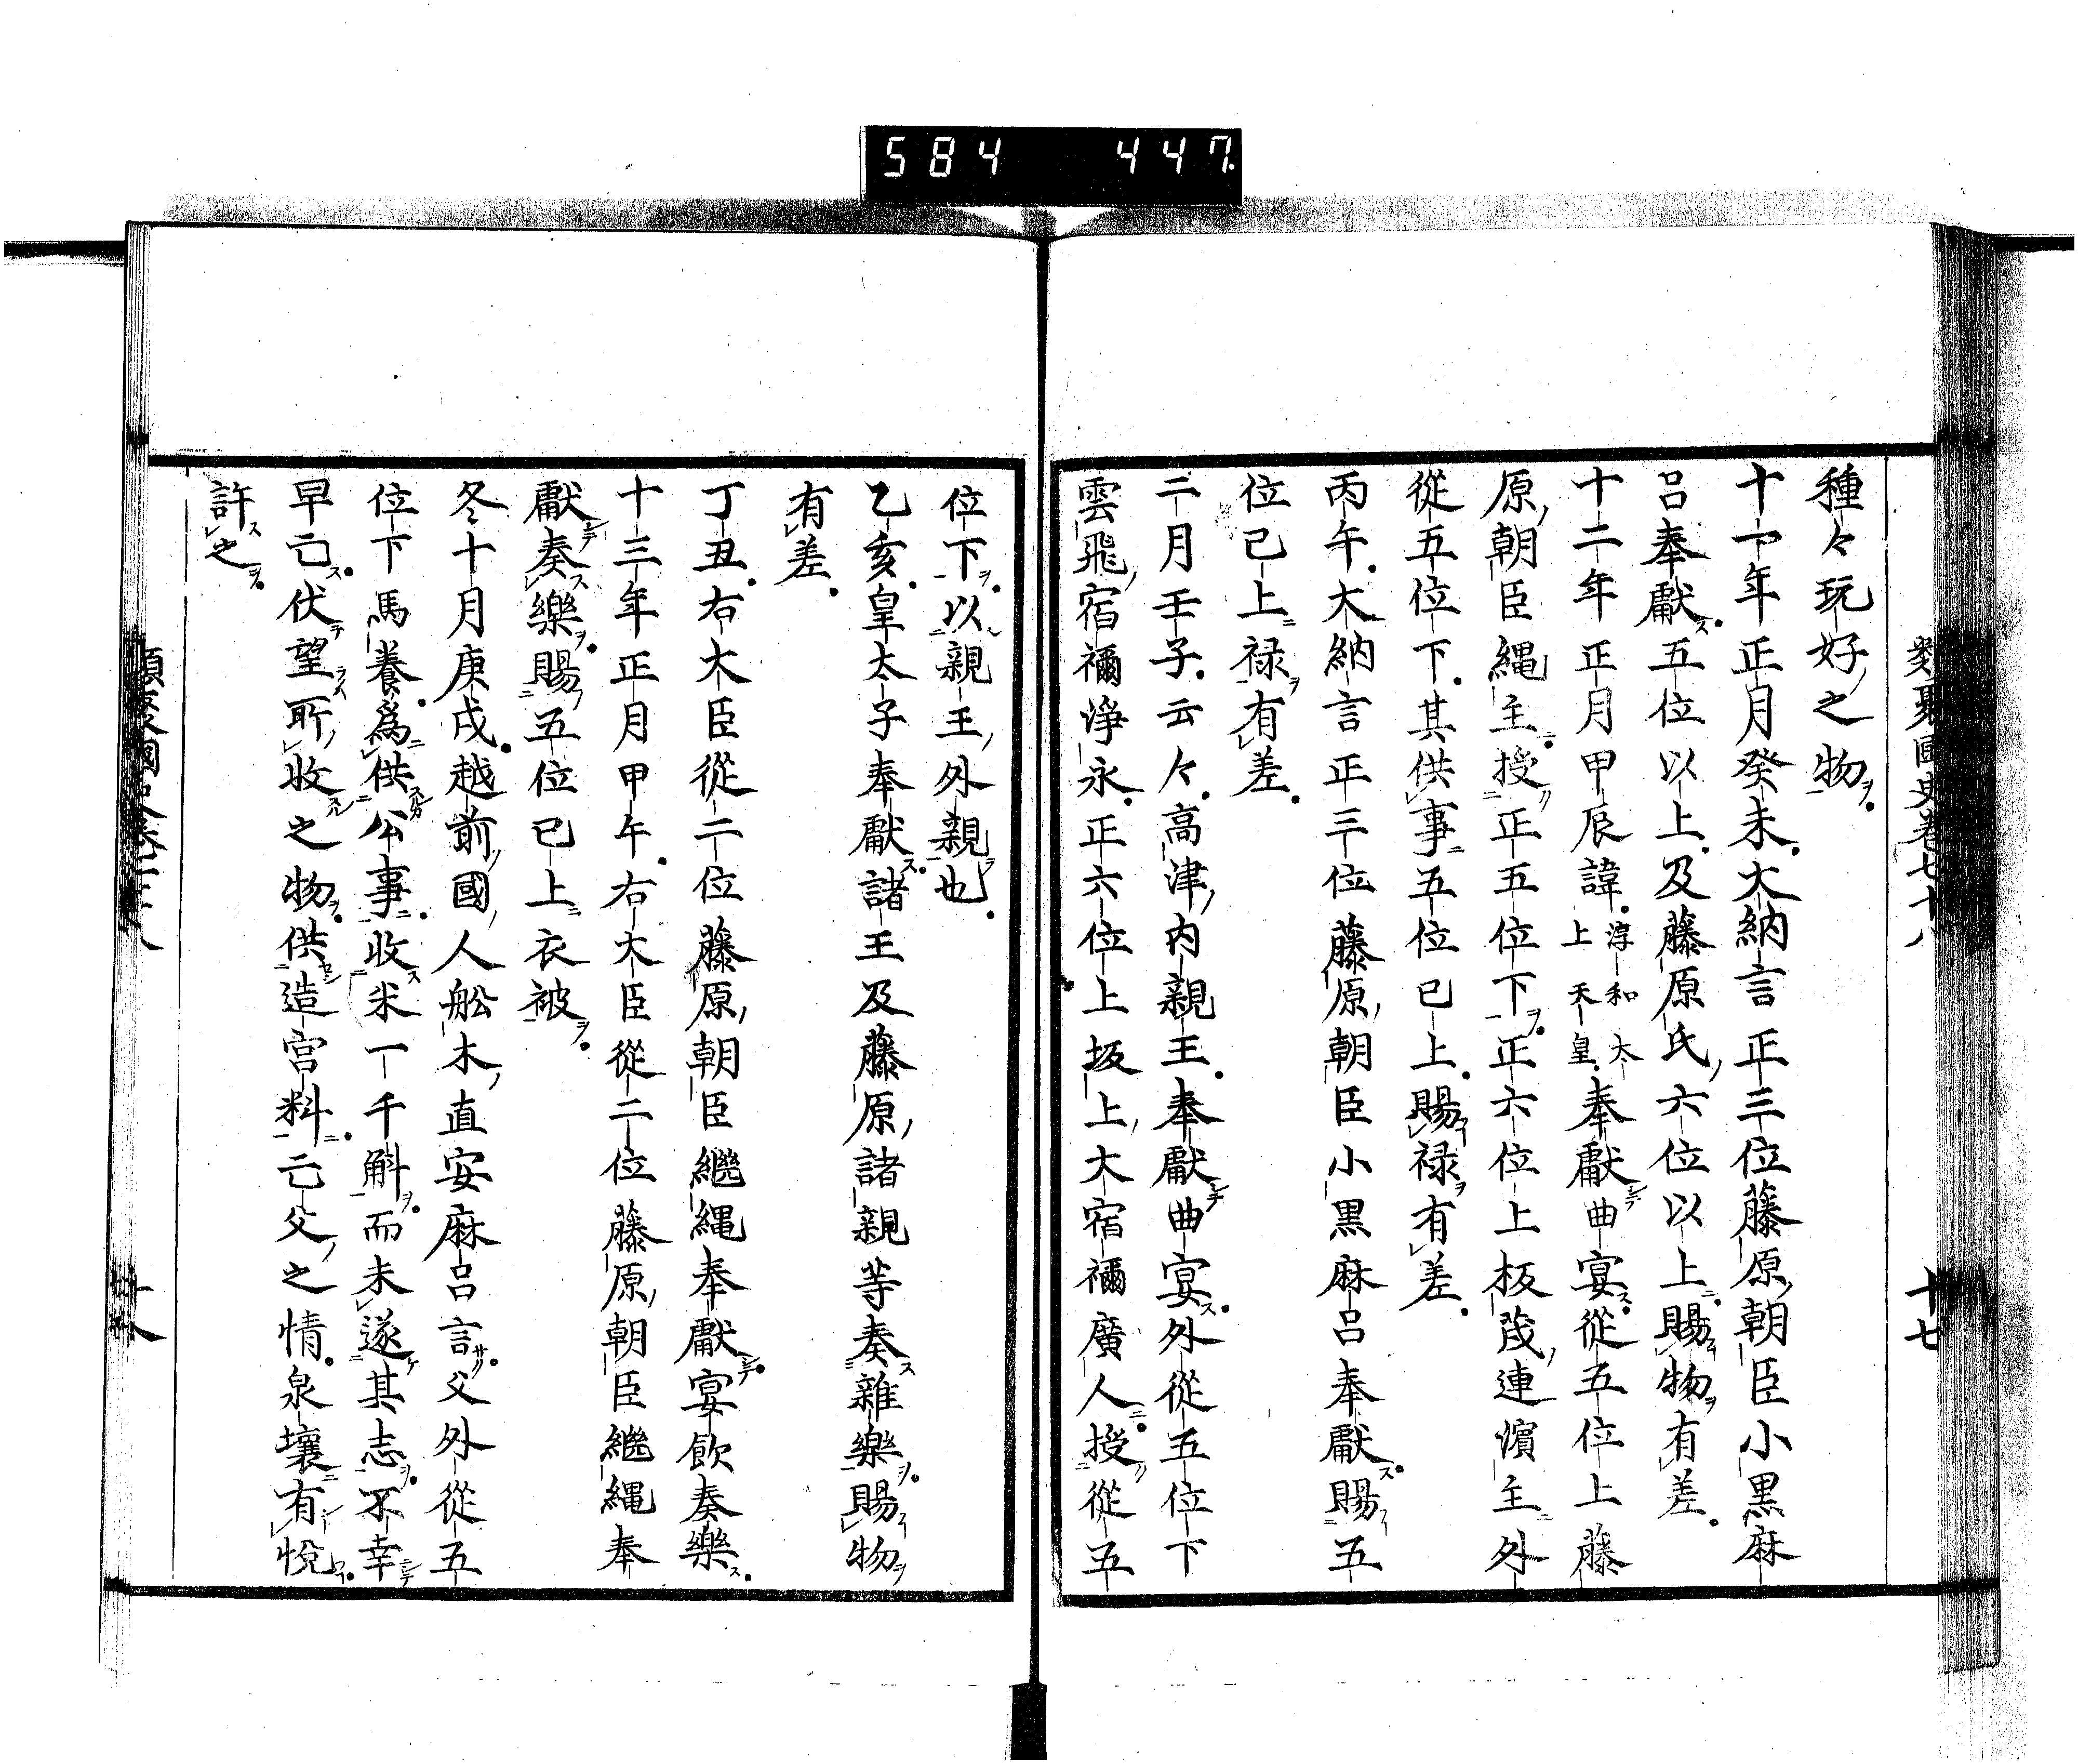 584 447
類聚國史卷七十八 十七
種々玩好之物
十一年正月癸未大納言正三位藤原朝臣小黒麻
呂奉獻五位以上及藤原氏六位以上賜物有差
十二年正月甲辰諱淳和太上天皇奉獻曲宴從五位上藤
原朝臣縄主授正五位下正六位上板茂連濱主外
從五位下其供事五位已上賜禄有差
丙午大納言正三位藤原朝臣小黒麻呂奉獻賜五
位已上禄有差
二月壬子云々高津内親王奉獻曲宴外從五位下
雲飛宿禰淨永正六位上坂上大宿禰廣人授從五
位下以親王外親也
乙亥皇太子奉獻諸王及藤原諸親等奏雜樂賜物
有差
丁丑右大臣從二位藤原朝臣繼縄奉獻宴飲奏樂
十三年正月甲午右大臣從二位藤原朝臣繼縄奉
獻奏樂賜五位已上衣被
冬十月庚戌越前國人舩木直安麻呂言父外從五
位下馬養爲供公事收米一千斛而未遂其志不幸
早亡伏望所收之物供造宮料亡父之情泉壤有悅
許之
類聚國史卷七十八 十八